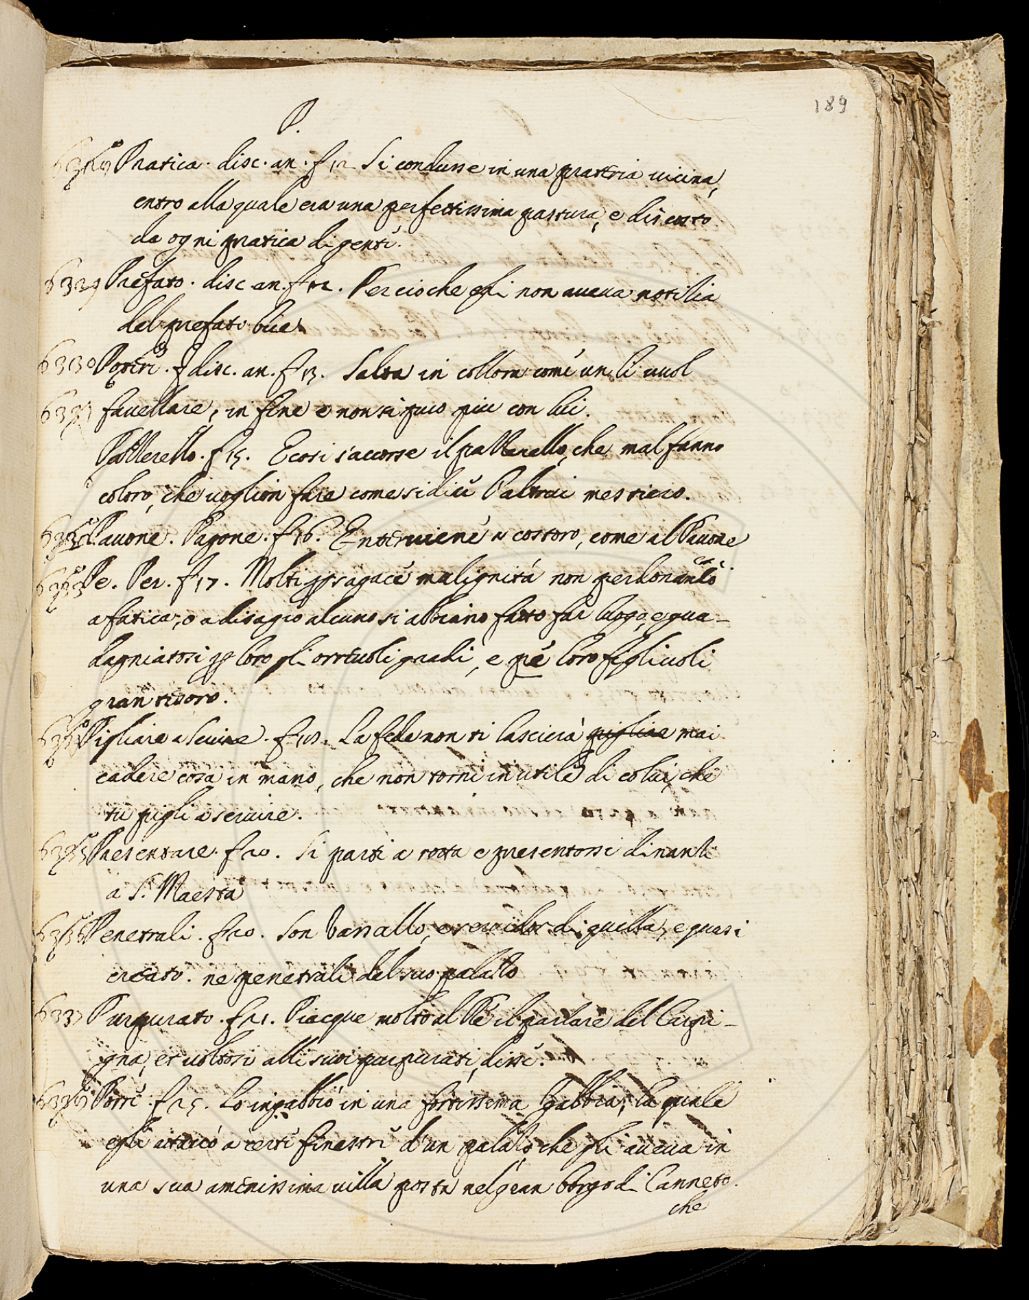 189
P.
Pratica. disc. an. f 12. Si condusse in una prateria vicina,
entro alla quale era una perfettissima pastura, e discosto
da ogni pratica di genti.
6329 Prefato. disc. an. f 12. Percioche egli non aveva notitia
del prefato bue.
6330 disc. an. f 13. Salta in collora come un li vuol
favellare, in fine e non si puo piu con lui.
f 15. E cosi s'accorse il che mal fanno
coloro, che voglion fare come si dice l'altrui mestiero.
Pavone. Pagone. f 16. Interviene a costoro, come al Pavone
Pe. Per. f 17. Molti p sagace malignità non perdonando
a fatica, o a disagio alcuno si abbiano fatto far luogo, e gua-
dagniatosi p loro gli orrevoli gradi, e pe loro figliuoli
gran tesoro.
Pigliare a servire. f 18. La fede non ti lascierà pigliare mai
cadere cosa in mano, che non torni in utile di colui, che
tu pigli a servire.
6335 Presentare. f 20. Si partì a rotta e presentossi dinanzi
a S. Maestà
6336 Penetrali. f 20. Son vassallo, e servidor di quella, e quasi
creato ne penetrali del suo palazzo
6337 Purpurato. f 21. Piacque molto al Re il parlare del Carpi-
gna, et voltosi alli suoi purpurati, disse.
Porre. f 25. Lo ingabbiò in una fortissima gabbia, la quale
egli attaccò a certe finestre d'un palazzo che gli aveva in
una sua amenissima villa posta nel gran borgo di Canneto.
che